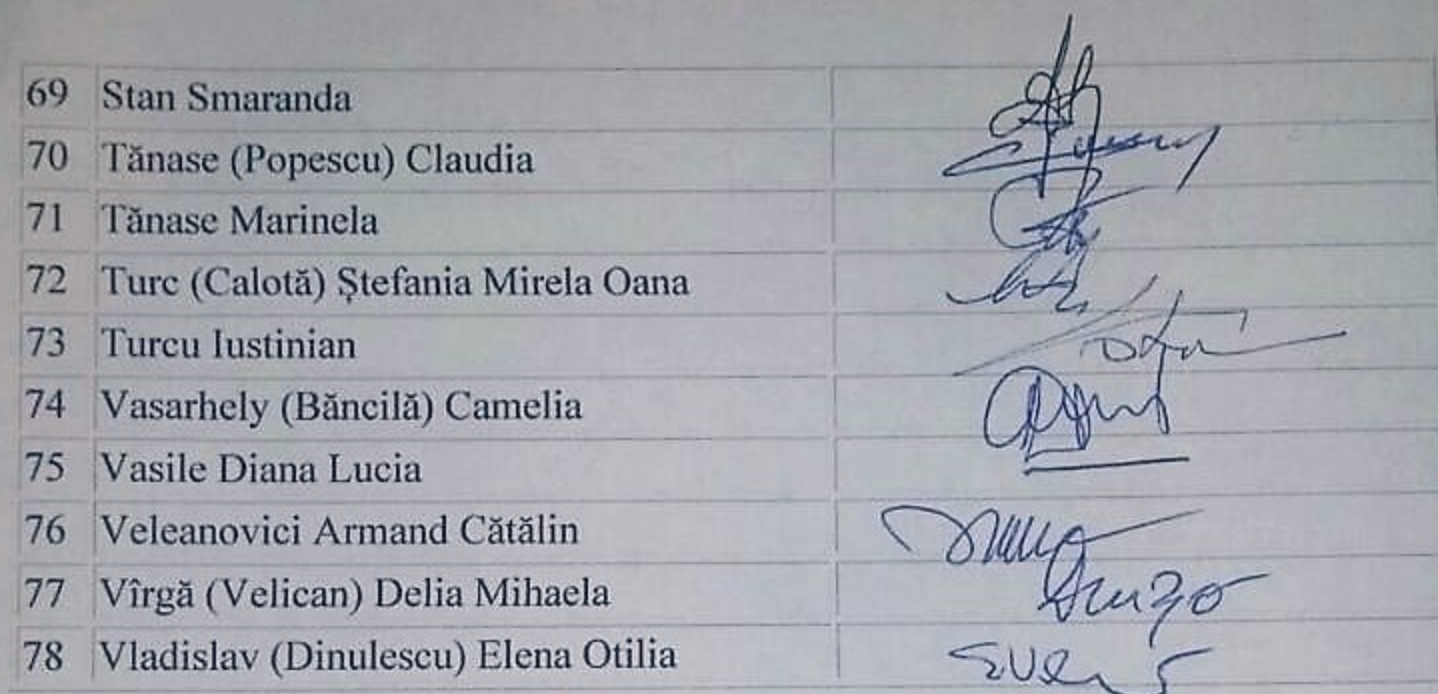 69 Stan Smaranda
70 Tănase (Popescu) Claudia
71 Tănase Marinela
72 Turc (Calotă) Ștefania Mirela Oana
73 Turcu Iustinian
74 Vasarhely (Băncilă) Camelia
75 Vasile Diana Lucia
76 Veleanovici Armand Cătălin
77 Vîrgă (Velican) Delia Mihaela
78 Vladislav (Dinulescu) Elena Otilia